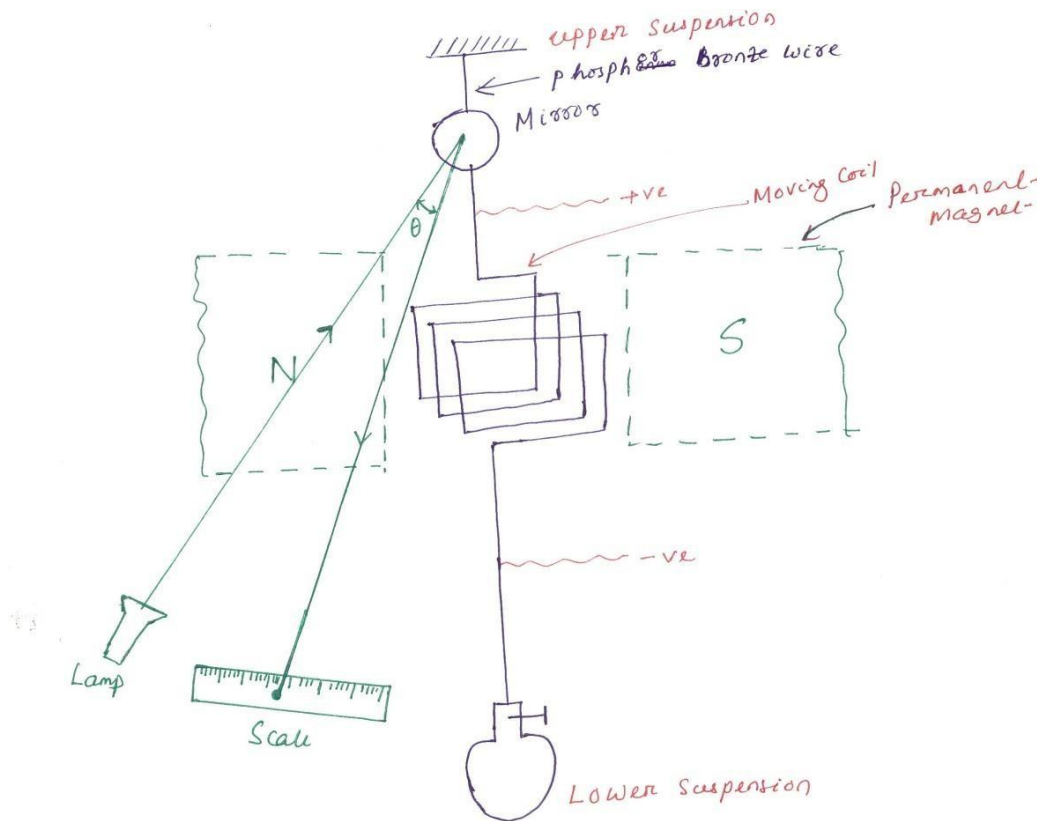 Upper Suspension
phospher Bronze wire
Mirror
+ve
Moving Coil
Permanent
magnet
θ
N
S
-ve
Lamp
Scale
Lower Suspension